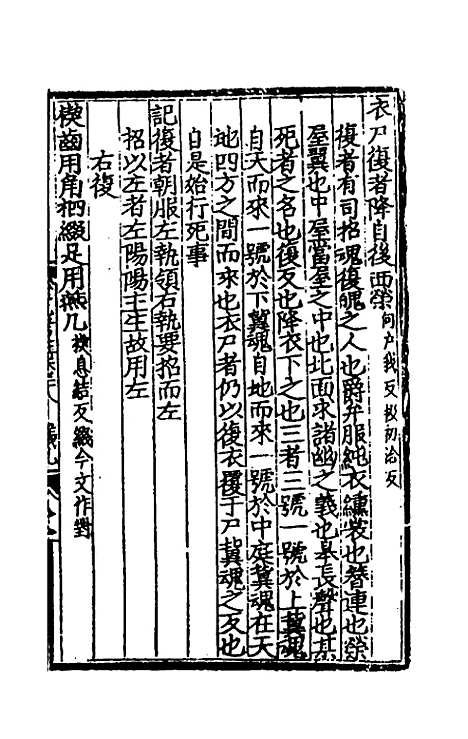 衣尸復者降自後西榮何户我反扱初洽反
復者有司招魂復魄之人也爵弁服純衣纁裳也簪連也榮
屋翼也中屋當屋之中也北面求諸幽之義也皋長聲也某
死者之名也復反也降衣下之也三者三號一號於上冀魂
自天而來一號於下冀魂自地而來一號於中庭冀魂在天
地四方之間而來也衣尸者仍以復衣覆于尸冀魂之反也
自是始行死事
記復者朝服左執領右執要招而左
招以左者左陽陽主生故用左
右復
楔齒用角柶綴足用燕几楔息結反綴今文作對